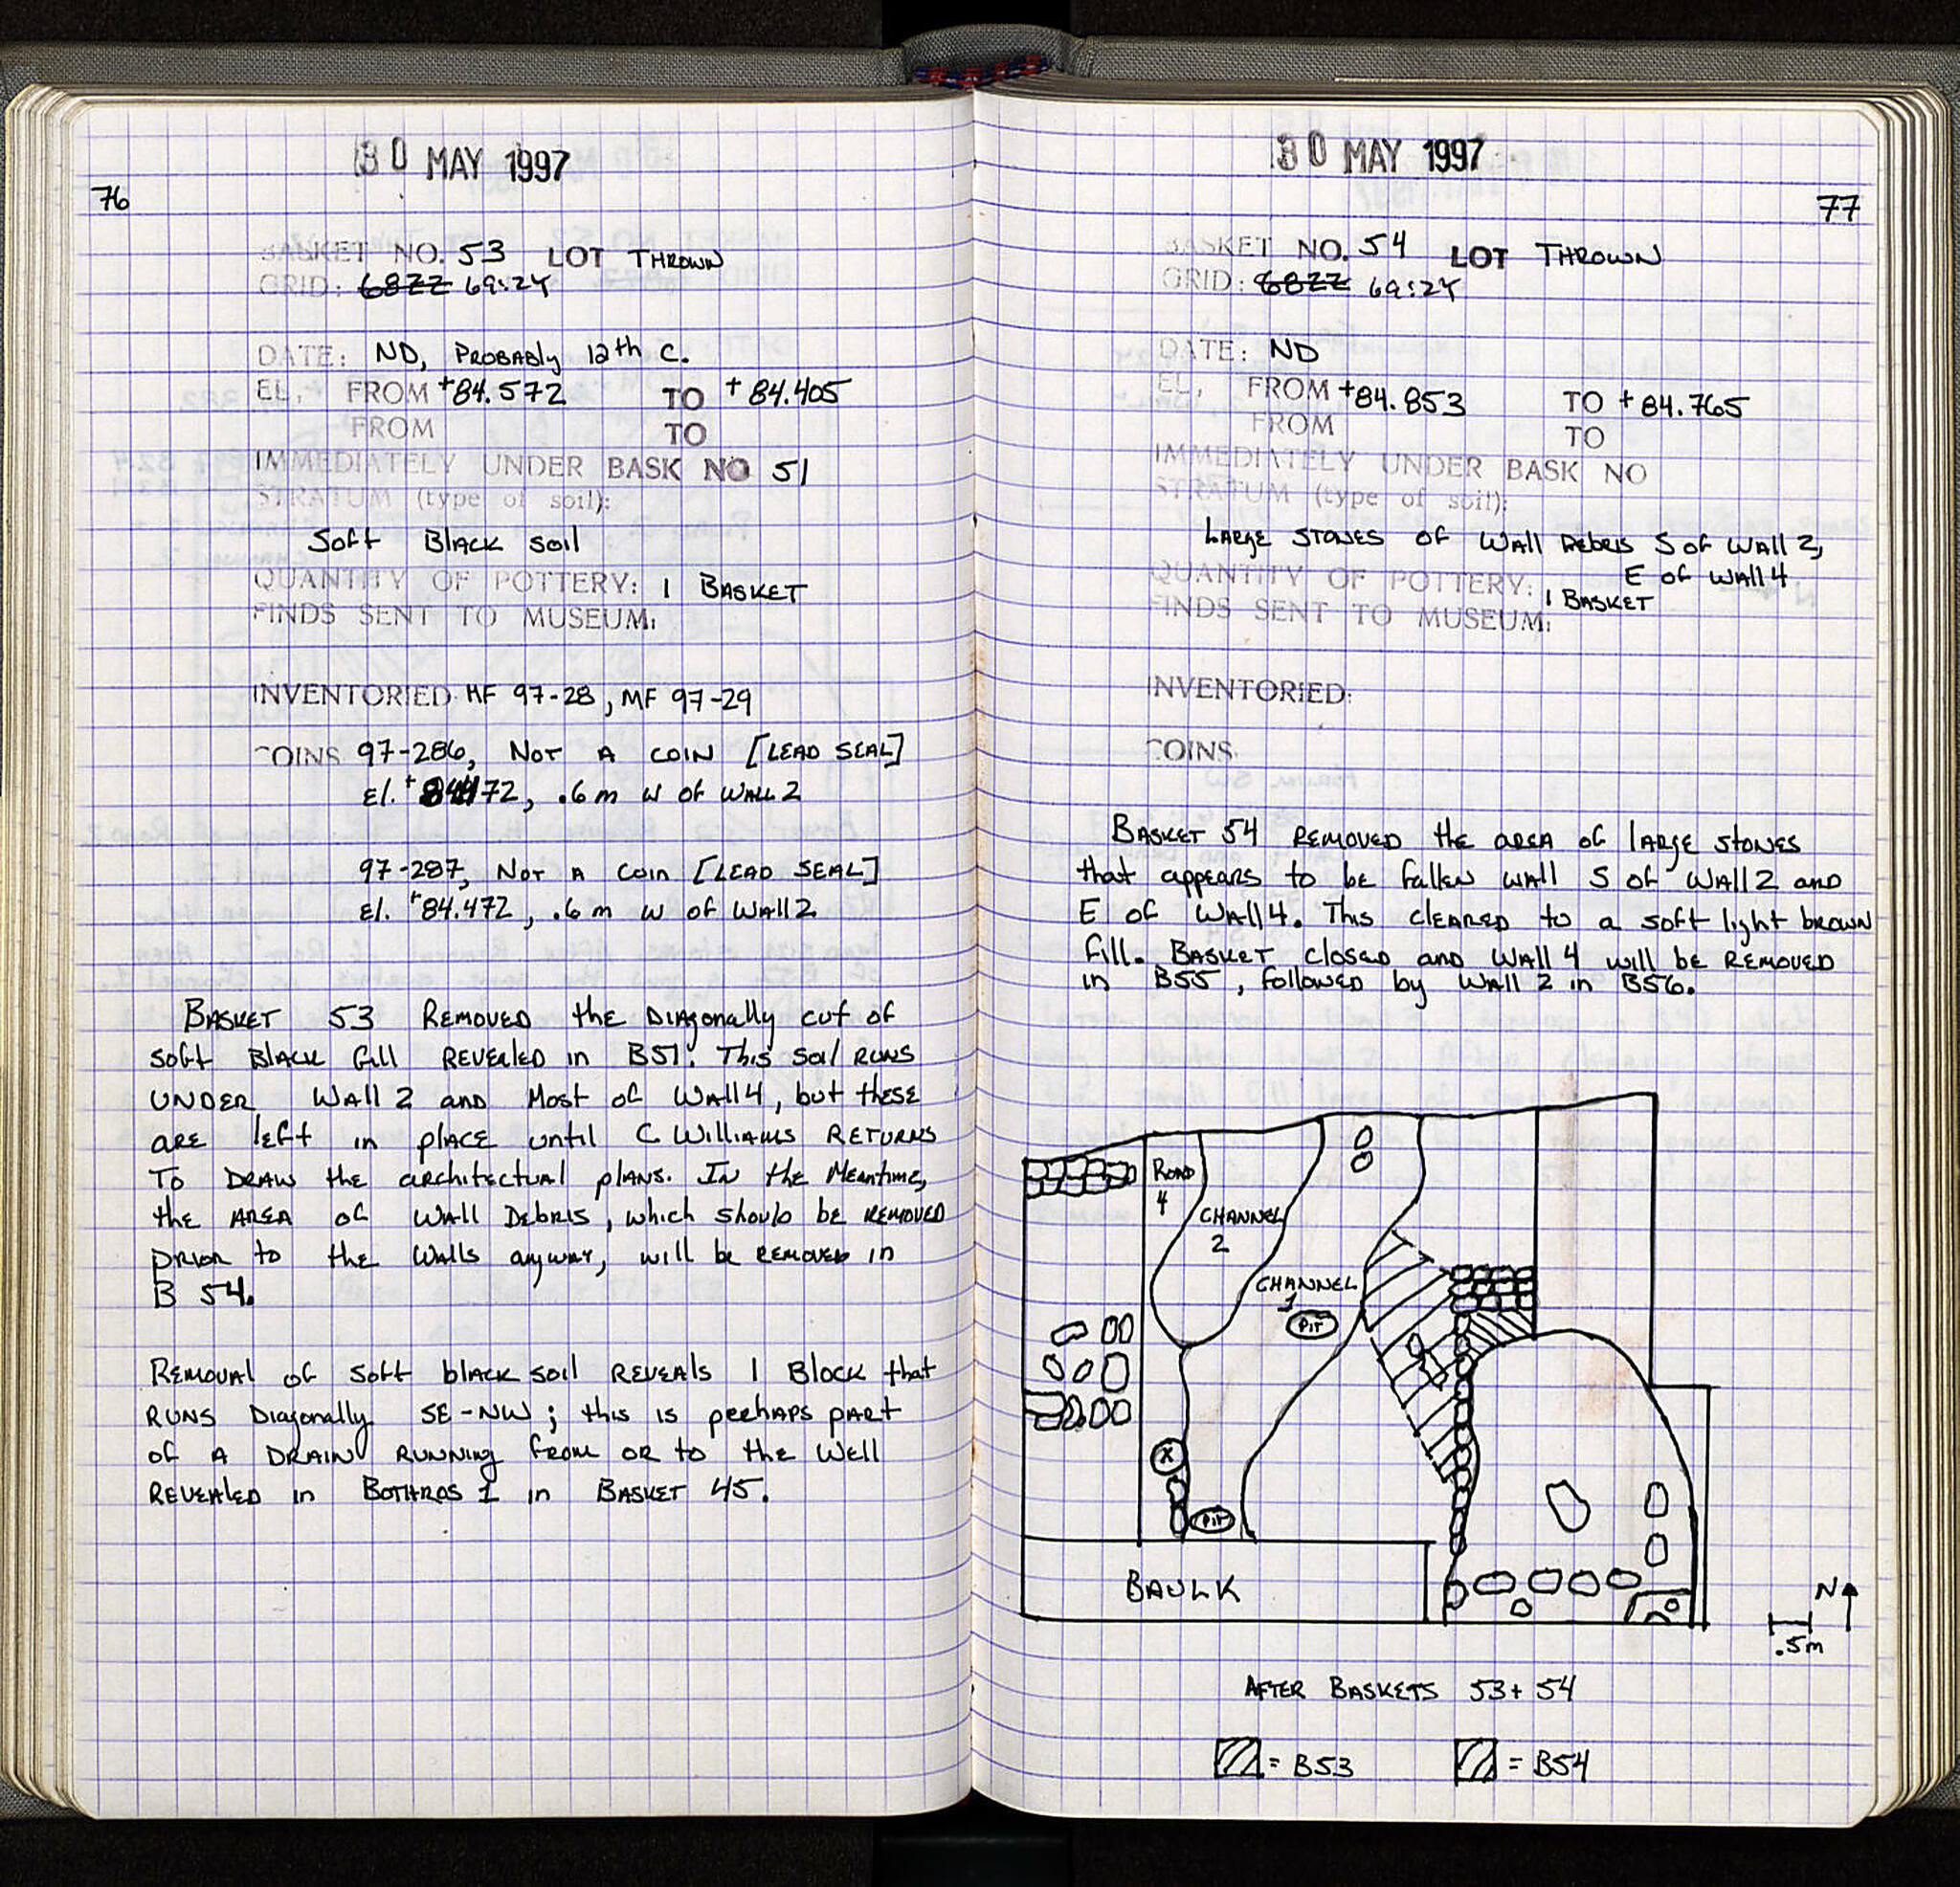 30 MAY 1997
76
BASKET NO. 53 LOT THROWN
GRID: 68ZZ 69:ZY
DATE: ND, PROBABLY 12th C.
EL, FROM +84.572 TO +84.405
FROM TO
IMMEDIATELY UNDER BASK NO 51
STRATUM (type of soil):
Soft Black soil
QUANTITY OF POTTERY: 1 BASKET
FINDS SENT TO MUSEUM:
INVENTORIED MF 97-28, MF 97-29
COINS 97-286, NOT A COIN [LEAD SEAL]
El. + 72, .6m W of WALL 2
97-287, NOT A COIN [LEAD SEAL]
El. +84.472, .6m W of WALL 2
BASKET 53 REMOVED the Diagonally cut of
soft BLACK fill REVEALED in B51. This soil RUNS
UNDER WALL 2 and Most of Wall 4, but these
ARE left in place until C Williams RETURNS
To DRAW the architectual plans. In the Meantime,
the AREA of WALL DEBRIS, which should be REMOVED
prior to the WALLS anyway, will be REMOVED in
B 54.
REMOVAL of soft black soil REVEALS 1 Block that
RUNS Diagonally SE-NW; this is perhaps part
of A DRAIN RUNNING from OR to the Well
REVEALED in BOTHROS 1 in BASKET 45.
30 MAY 1997
77
BASKET NO. 54 LOT THROWN
GRID: 68ZZ 69:ZY
DATE: ND
EL, FROM +84.853 TO +84.765
FROM TO
IMMEDIATELY UNDER BASK NO
STRATUM (type of soil):
LARGE STONES OF WALL DEBRIS S of WALL 2,
E of WALL 4
QUANTITY OF POTTERY: 1 BASKET
FINDS SENT TO MUSEUM:
INVENTORIED:
COINS
BASKET 54 REMOVED the AREA of LARGE STONES
that appears to be fallen WALL S of WALL 2 and
E of WALL 4. This CLEARED to a soft light brown
fill. BASKET closed and WALL 4 will be REMOVED
in B55, followed by WALL 2 in B56.
ROAD
4
CHANNEL
2
CHANNEL
1
PIT
X
PIT
BAULK
N
.5m
AFTER BASKETS 53 + 54
= B53 = B54